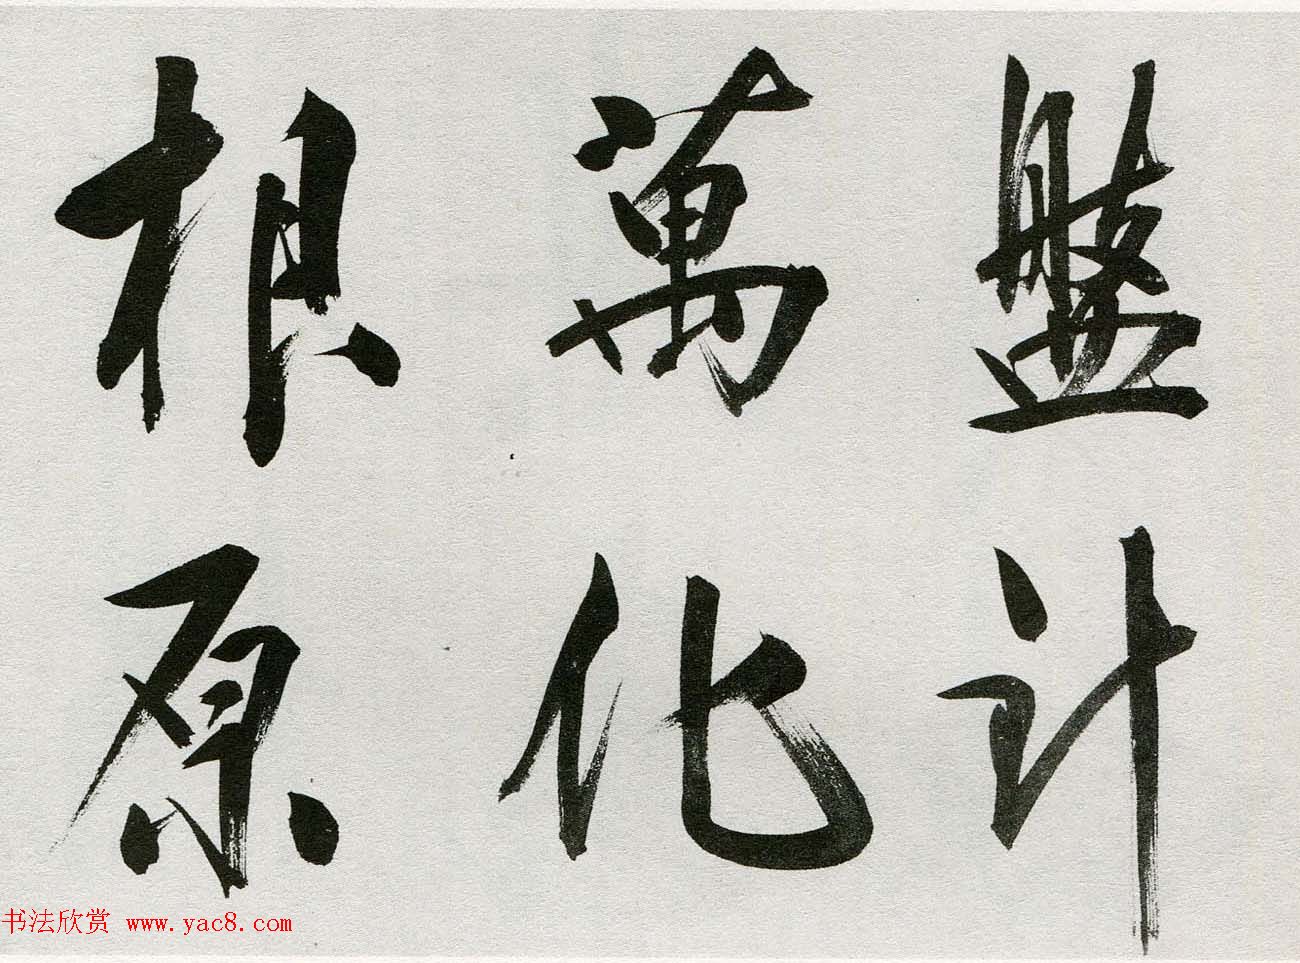 盤计
萬化
根原
书法欣赏 www.yac8.com